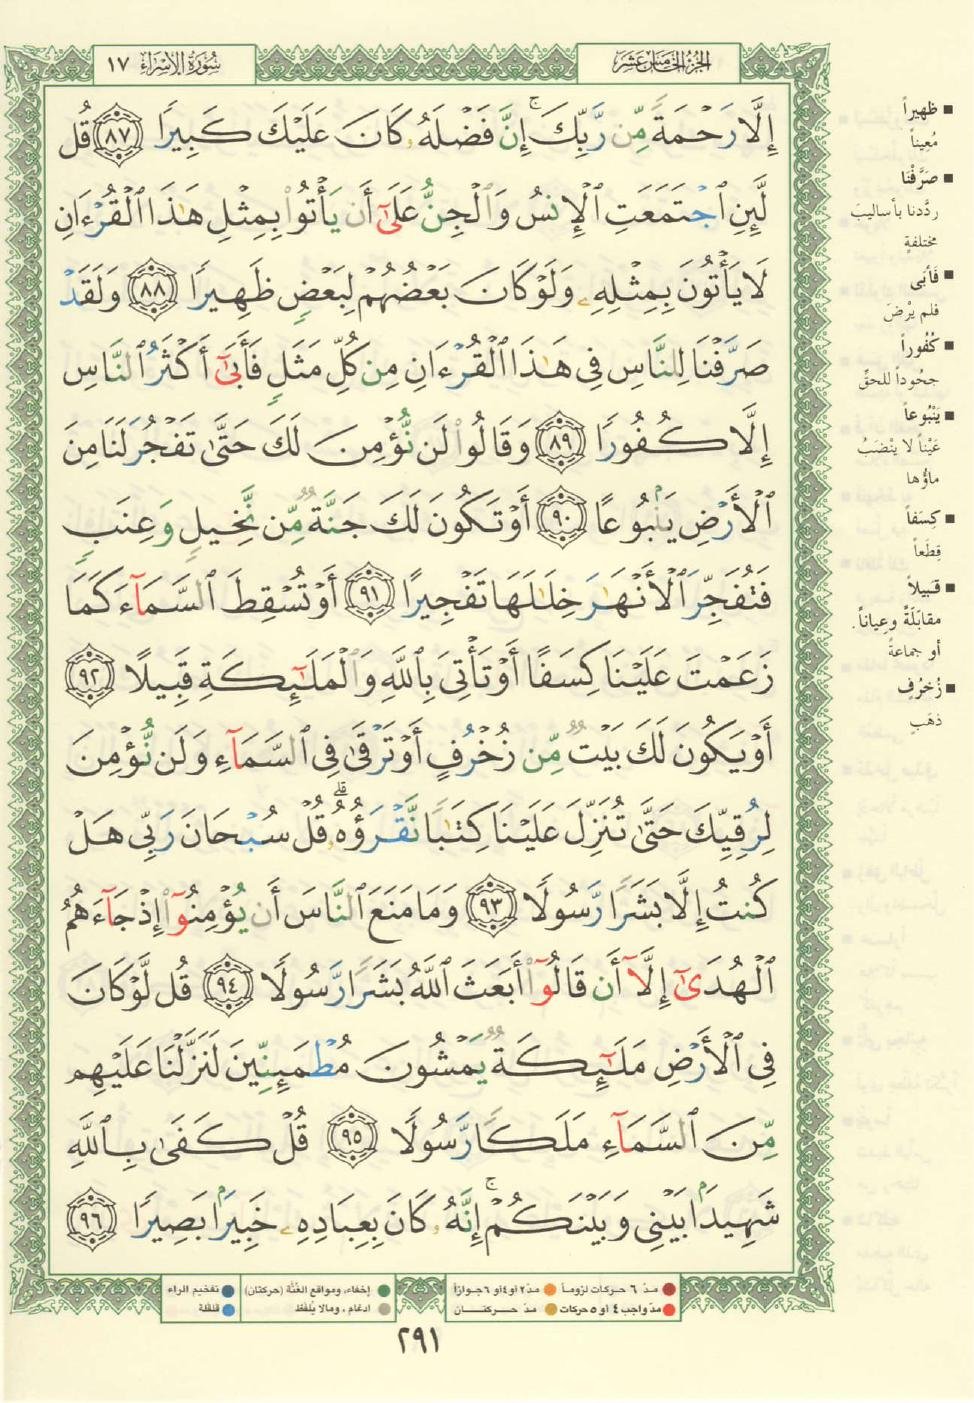 الجزء الخامس عشر
سورة الإسراء ١٧
إِلَّا رَحْمَةً مِّن رَّبِّكَ ۚ إِنَّ فَضْلَهُۥ كَانَ عَلَيْكَ كَبِيرًا ٨٧ قُل
لَّئِنِ ٱجْتَمَعَتِ ٱلْإِنسُ وَٱلْجِنُّ عَلَىٰٓ أَن يَأْتُوا۟ بِمِثْلِ هَٰذَا ٱلْقُرْءَانِ
لَا يَأْتُونَ بِمِثْلِهِۦ وَلَوْ كَانَ بَعْضُهُمْ لِبَعْضٍ ظَهِيرًا ٨٨ وَلَقَدْ
صَرَّفْنَا لِلنَّاسِ فِى هَٰذَا ٱلْقُرْءَانِ مِن كُلِّ مَثَلٍ فَأَبَىٰٓ أَكْثَرُ ٱلنَّاسِ
إِلَّا كُفُورًا ٨٩ وَقَالُوا۟ لَن نُّؤْمِنَ لَكَ حَتَّىٰ تَفْجُرَ لَنَا مِنَ
ٱلْأَرْضِ يَنۢبُوعًا ٩٠ أَوْ تَكُونَ لَكَ جَنَّةٌ مِّن نَّخِيلٍ وَعِنَبٍ
فَتُفَجِّرَ ٱلْأَنْهَٰرَ خِلَٰلَهَا تَفْجِيرًا ٩١ أَوْ تُسْقِطَ ٱلسَّمَآءَ كَمَا
زَعَمْتَ عَلَيْنَا كِسَفًا أَوْ تَأْتِىَ بِٱللَّهِ وَٱلْمَلَٰٓئِكَةِ قَبِيلًا ٩٢
أَوْ يَكُونَ لَكَ بَيْتٌ مِّن زُخْرُفٍ أَوْ تَرْقَىٰ فِى ٱلسَّمَآءِ وَلَن نُّؤْمِنَ
لِرُقِيِّكَ حَتَّىٰ تُنَزِّلَ عَلَيْنَا كِتَٰبًا نَّقْرَؤُهُۥ ۗ قُلْ سُبْحَانَ رَبِّى هَلْ
كُنتُ إِلَّا بَشَرًا رَّسُولًا ٩٣ وَمَا مَنَعَ ٱلنَّاسَ أَن يُؤْمِنُوٓا۟ إِذْ جَآءَهُمُ
ٱلْهُدَىٰٓ إِلَّآ أَن قَالُوٓا۟ أَبَعَثَ ٱللَّهُ بَشَرًا رَّسُولًا ٩٤ قُل لَّوْ كَانَ
فِى ٱلْأَرْضِ مَلَٰٓئِكَةٌ يَمْشُونَ مُطْمَئِنِّينَ لَنَزَّلْنَا عَلَيْهِم
مِّنَ ٱلسَّمَآءِ مَلَكًا رَّسُولًا ٩٥ قُلْ كَفَىٰ بِٱللَّهِ
شَهِيدًۢا بَيْنِى وَبَيْنَكُمْ ۚ إِنَّهُۥ كَانَ بِعِبَادِهِۦ خَبِيرًۢا بَصِيرًا ٩٦
ظهيراً
مُعيناً
صَرَّفْنَا
ردَّدنا بأساليبَ
مختلفةٍ
فَأبَى
فلم يرْضَ
كُفُوراً
جحُوداً للحقِّ
يَنْبُوعاً
عَيْناً لا يَنْضَبُ
ماؤُها
كِسَفاً
قِطَعاً
قَبيلاً
مقابَلَةً وعياناً.
أو جماعةً
زُخرُفٍ
ذهَبٍ
مدّ ٦ حركات لزوماً مدّ ٢ أو ٤ أو ٦ جوازاً
مدّ واجب ٤ أو ٥ حركات مدّ حركتان
إخفاء، ومواقع الغُنَّة (حركتان) تفخيم الراء
ادغام، ومالا يُلفَظ قلقلة
٢٩١